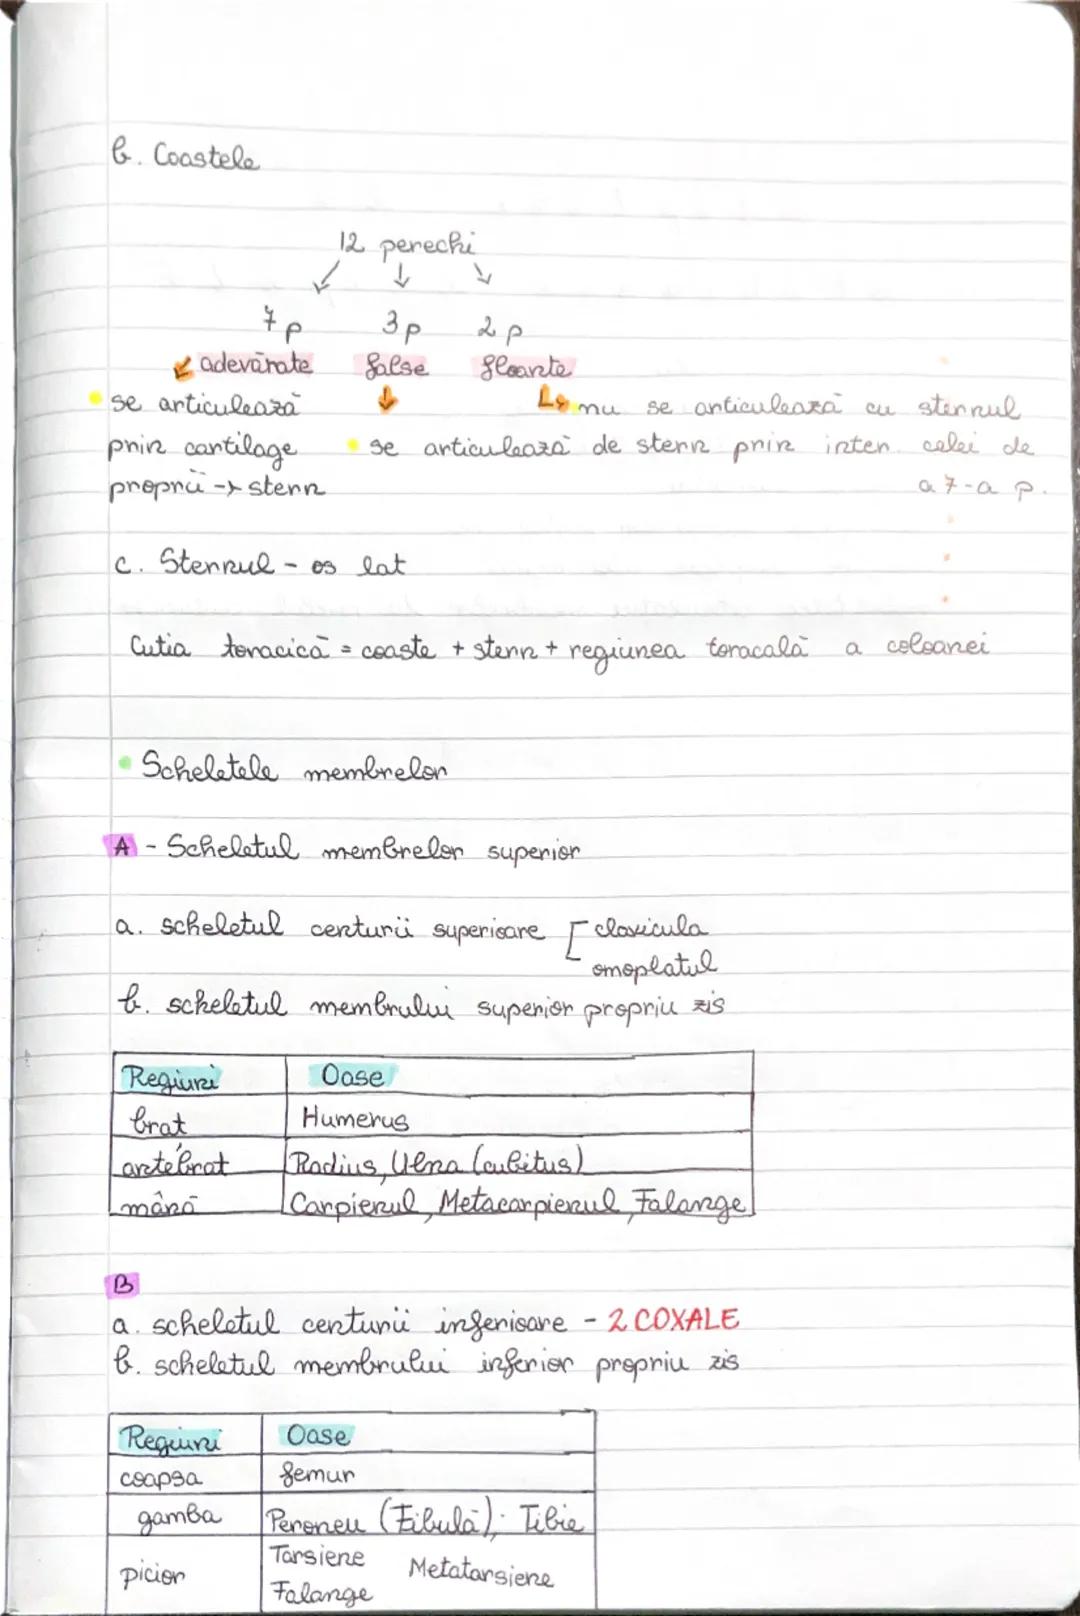 b. Coastele
12 perechi
↙ ↓ ↘
7 p 3 p 2 p
adevărate false floante
se articulează nu se articulează cu sternul
prin cartilage se articulează de stern prin inter. celei de
proprii → stern a 7-a p.
c. Sternul - os lat
Cutia toracică = coaste + stern + regiunea toracală a coloanei
Scheletele membrelor
A - Scheletul membrelor superior
a. scheletul centurii superioare [ clavicula
omoplatul
b. scheletul membrului superior propriu zis
Regiuni Oase
brat Humerus
antebrat Radius, Ulna (cubitus)
mână Carpienul, Metacarpienul, Falange
B
a. scheletul centurii inferioare - 2 COXALE
b. scheletul membrului inferior propriu zis
Regiuni Oase
coapsa femur
gamba Peroneu (Fibulă); Tibie
picior Tarsiene Metatarsiene
Falange